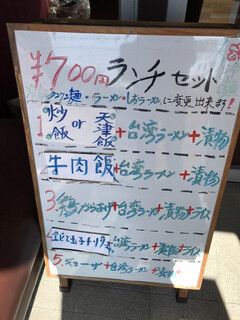 ¥700円ランチセット
タンタン麺・ラーメン・しおラーメンに変更出来ます!
1. 炒飯 or 天津飯 +台湾ラーメン+漬物
2. 牛肉飯+台湾ラーメン+漬物
3. 鶏のからあげ+台湾ラーメン+漬物+ライス
4. エビと玉子 台湾ラーメン+漬物+ライス
5. ギョーザ+台湾ラーメン+漬物+